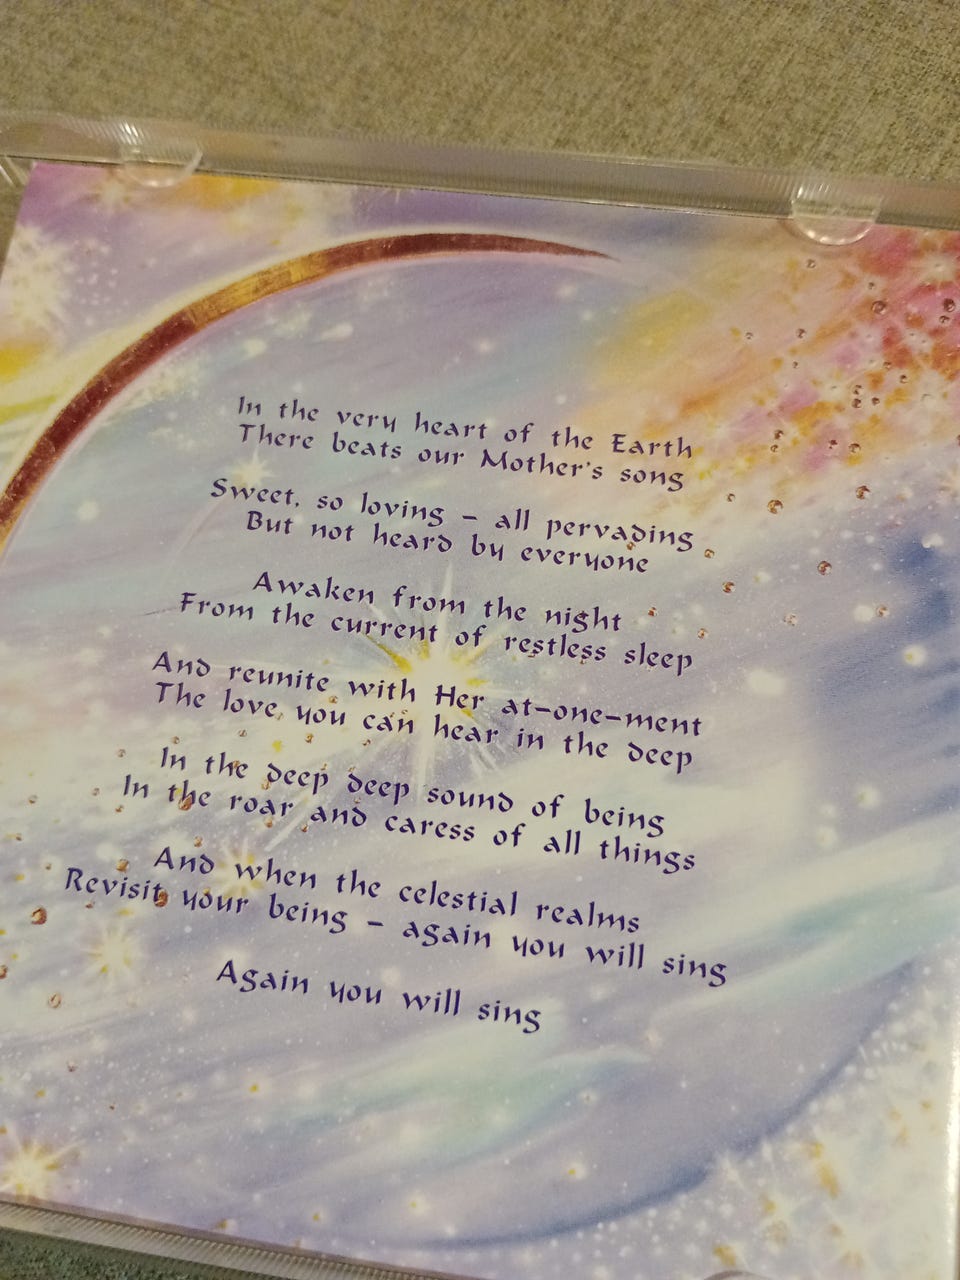 In the very heart of the Earth
There beats our Mother's song
Sweet, so loving – all pervading
But not heard by everyone
Awaken from the night
From the current of restless sleep
And reunite with Her at-one-ment
The love, you can hear in the deep
In the deep deep sound of being
In the roar and caress of all things
And when the celestial realms
Revisit your being – again you will sing
Again you will sing